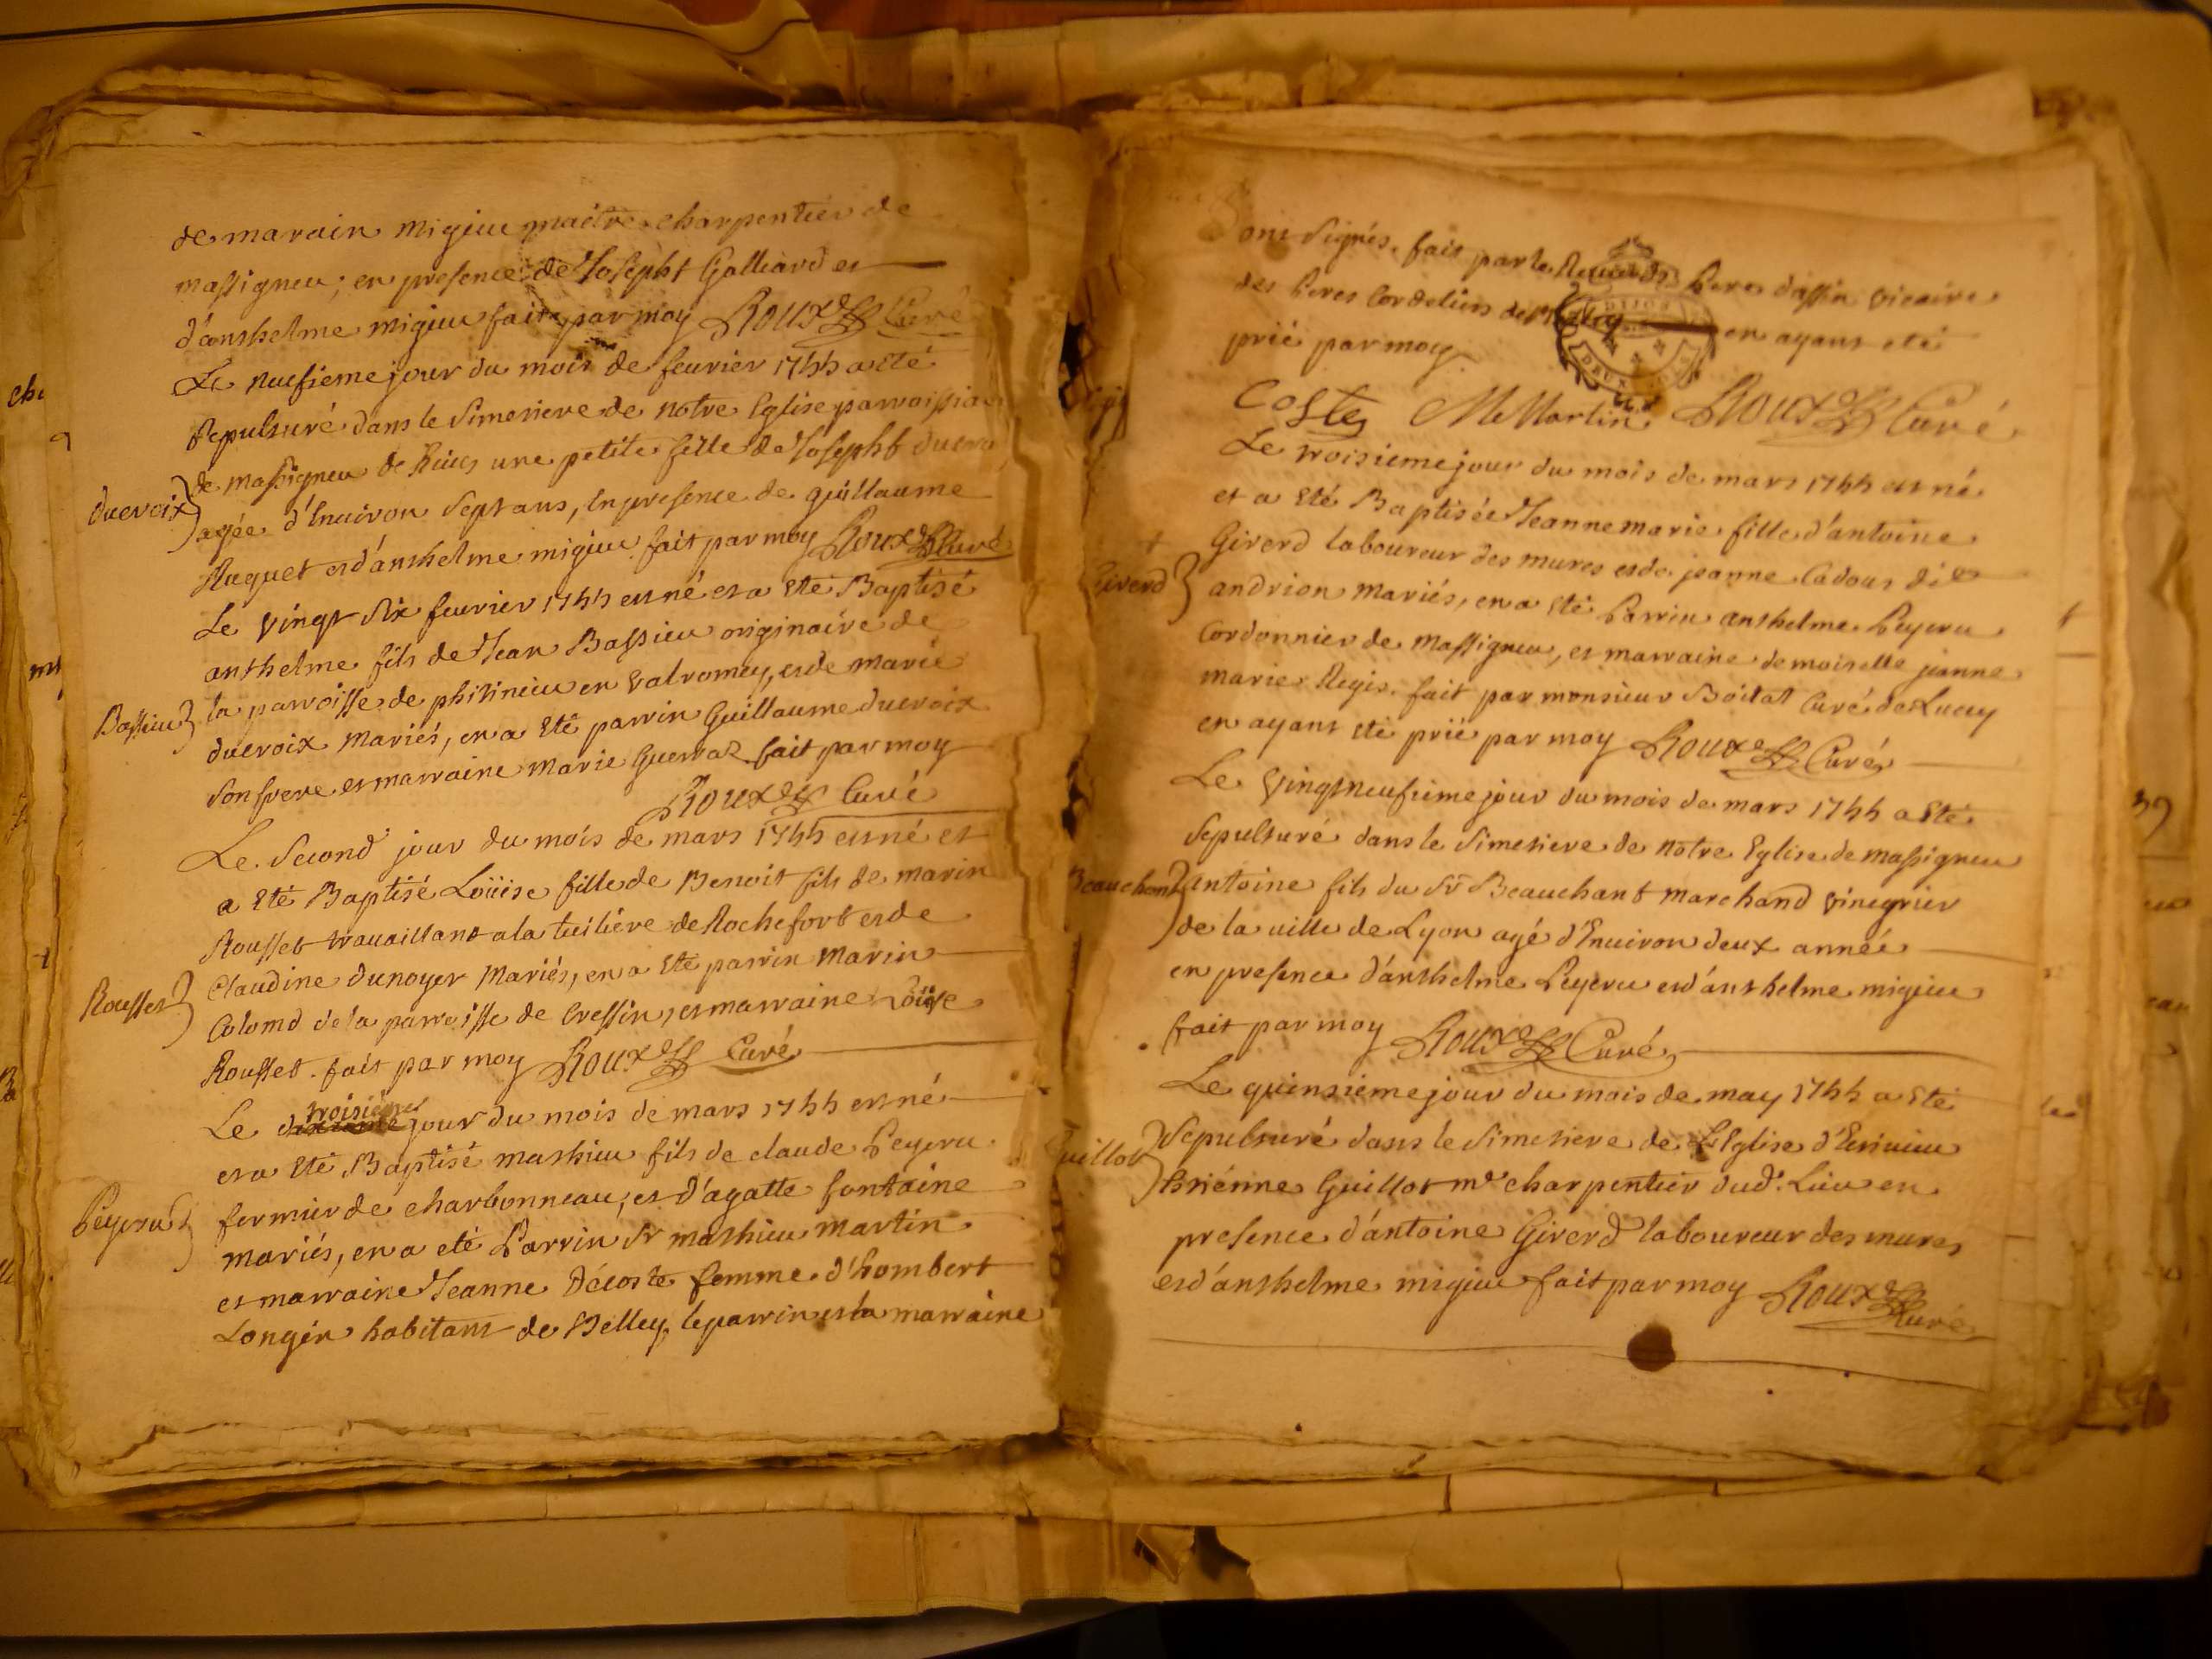 de marain migieu maitre charpentier de
massigneu; en presence de Joseph Galliard et
d'anthelme migieu fait par moy Roux Curé
Le nuefieme jour du mois de feurier 1744 a eté
sepulturé dans le simetiere de notre Eglise parroissia
ducroix
de massigneu de Rives une petite fille de Joseph ducro
agée d'Enuiron sept ans, en presence de guillaume
Huguet et d'anthelme migieu fait par moy Roux Curé
Le vingt six feurier 1744 est né et a Eté Baptisé
anthelme fils de Jean Bassieu originaire de
Bassieu
la parroisse de phitinieu en valromey, et de marie
ducroix mariés, en a Eté parrin Guillaume ducroix
son frere et marraine marie Guerraz fait par moy
Roux Curé
Le Second jour du mois de mars 1744 est né et
a Eté Baptisé Loüise fille de Benoit fils de marin
Rousset travaillant a la tuiliére de Rochefort et de
Rousset
Claudine dunoyer Mariés, en a Eté parrin Marin
Colomd de la parroisse de Cressin, et marraine Loüise
Rousset. fait par moy Roux Curé
Le troisiéme jour du mois de mars 1744 est né
et a Eté Baptisé mathieu fils de claude Peyeru
Peyeru
fermier de charbonneau, et d'agatte fontaine
mariés, en a eté Parrin Sr mathieu martin
et marraine Jeanne Décoste femme d'hombert
Longin habitant de Belley, le parrin et la marraine
ont signés. fait par le Reuerd Pere dassin vicaire
des Peres Cordeliers de en ayant eté
prié par moy
Coste M Martin Roux Curé
Le troisieme jour du mois de mars 1744 est né
et a Eté Baptisée Jeanne marie fille d'antoine
Girerd
Girerd laboureur des mures et de jeanne Cadour dit
andrion mariés, en a eté Parrin anthelme Peyeru
Cordonnier de Massigneu, et marraine demoiselle jeanne
marie Regis. fait par monsieur Boitat Curé de Lucey
en ayant eté prié par moy Roux Curé
Le vingtneufieme jour du mois de mars 1744 a Eté
sepulturé dans le simetiere de notre Eglise de massigneu
Beauchant
antoine fils du Sr Beauchant marchand vinegrier
de la ville de Lyon agé d'Enuiron deux année
en presence d'anthelme Peyeru et d'anthelme migieu
fait par moy Roux Curé
Le quinsieme jour du mois de may 1744 a Eté
uillot
sepulturé dans le simetiere de L'Eglise d'Ecrivieu
Etiénne Guillot mr charpentier dud. Lieu en
presence d'antoine Girerd laboureur des mures
et d'anthelme migieu fait par moy Roux Curé